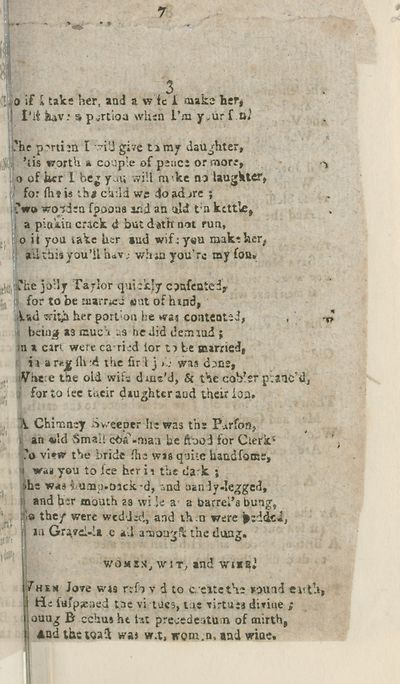 7
3
o if I take her, and a wife I make her,
I'll have a portion when I'm your son!
The portion I will give to my daughter,
'tis worth a couple of pence or more,
o of her I beg you will make no laughter,
for she is the child we do adore ;
Two wooden spoons and an old tin kettle,
a pipkin crack d but doth not run,
o if you take her and wife you make her,
all this you'll have when you're my son.
The jolly Taylor quickly consented,
for to be married out of hand,
And with her portion he was contented,
being as much as he did demand ;
in a cart were carried for to be married,
in a rag shed the first job was done,
Where the old wife danc'd, & the cobler pranc'd,
for to see their daughter and their son.
A Chimney Sweeper he was the Parson,
an old Small coal-man he stood for Clerk
To view the bride she was quite handsome,
was you to see her in the dark ;
she was hump-back'd, and bandy-legged,
and her mouth as wide as a barrel's bung,
So they were wedded, and then were bedded,
in Gravel-lane all amongst the dung.
WOMEN, WIT, and WINE!
WHEN Jove was resolv d to create the round earth,
He suspæned the virtues, the virtues divine ;
oung Bacchus he sat precedentum of mirth,
And the toast was wit, women, and wine.